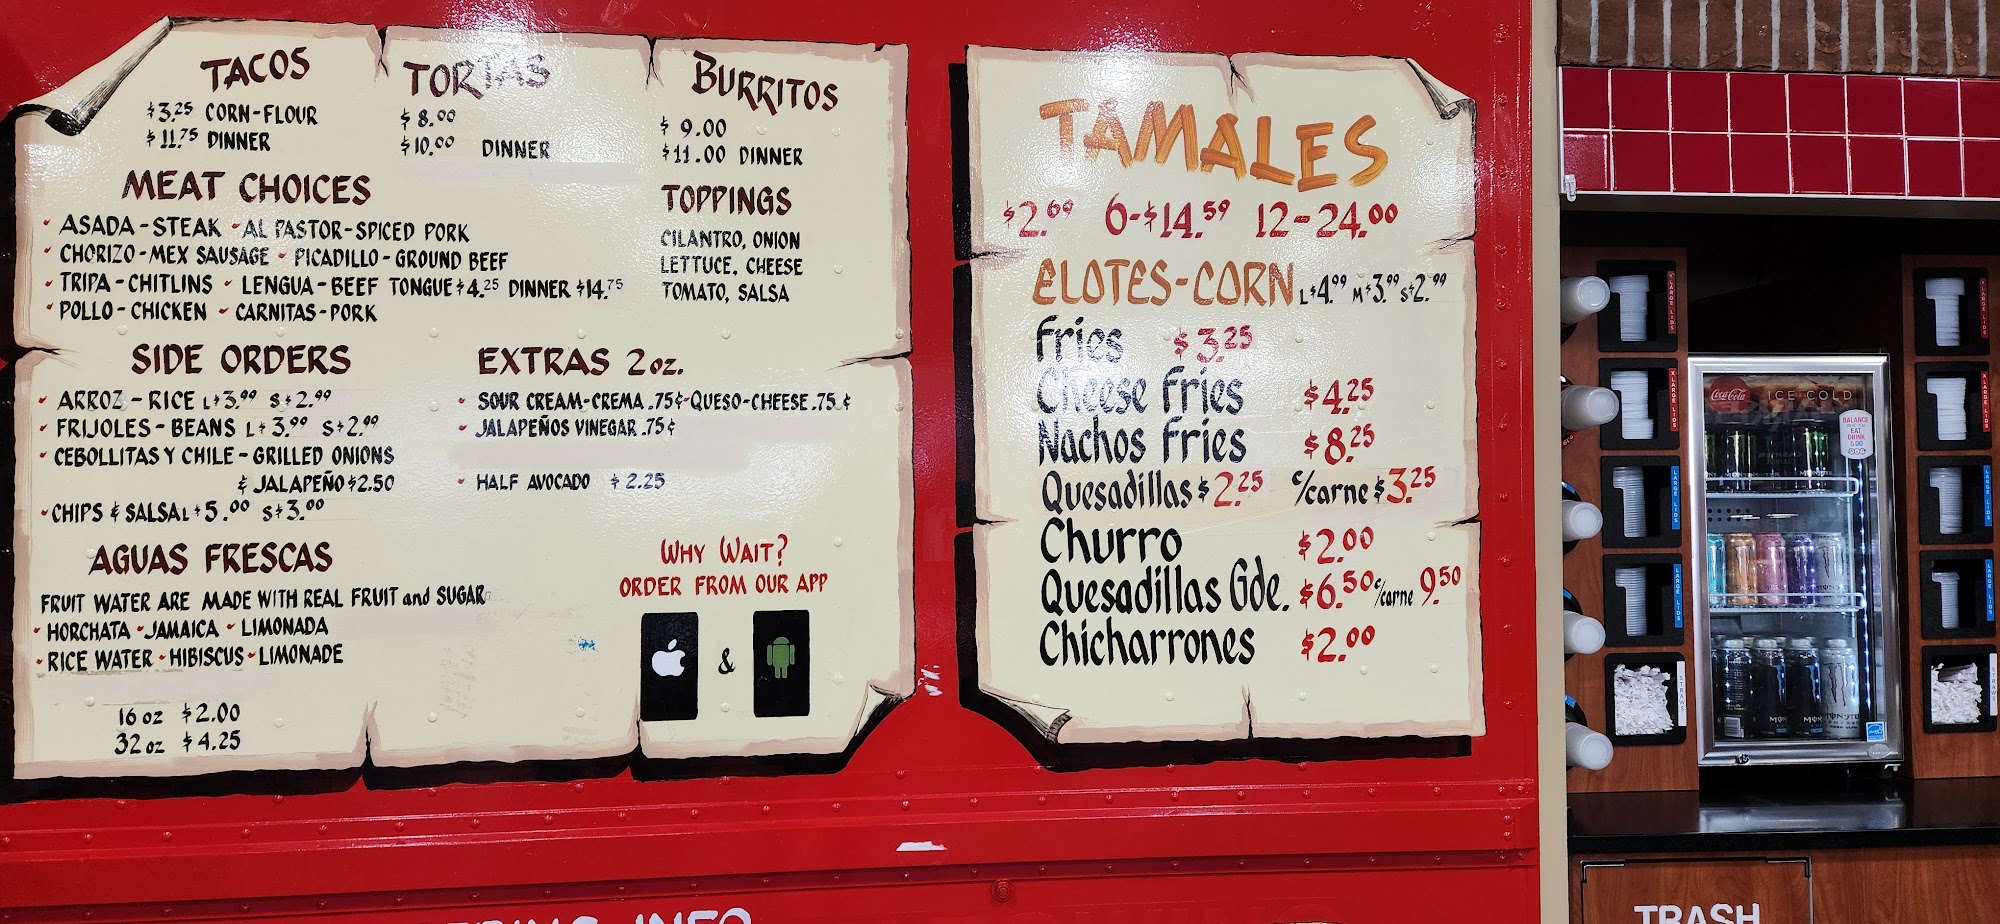 TACOS
$3.25 CORN-FLOUR
$11.75 DINNER
TORTAS
$8.00
$10.00 DINNER
BURRITOS
$9.00
$11.00 DINNER
MEAT CHOICES
• ASADA-STEAK • AL PASTOR-SPICED PORK
• CHORIZO-MEX SAUSAGE • PICADILLO-GROUND BEEF
• TRIPA-CHITLINS • LENGUA-BEEF TONGUE $4.25 DINNER $14.75
• POLLO-CHICKEN • CARNITAS-PORK
TOPPINGS
CILANTRO, ONION
LETTUCE, CHEESE
TOMATO, SALSA
SIDE ORDERS
• ARROZ-RICE L$3.99 S$2.99
• FRIJOLES-BEANS L$3.99 S$2.99
• CEBOLLITAS Y CHILE-GRILLED ONIONS
& JALAPEÑO $2.50
• CHIPS & SALSA L$5.00 S$3.00
EXTRAS 2oz.
• SOUR CREAM-CREMA .75¢ - QUESO-CHEESE .75¢
• JALAPEÑOS VINEGAR .75¢
• HALF AVOCADO $2.25
AGUAS FRESCAS
FRUIT WATER ARE MADE WITH REAL FRUIT and SUGAR
• HORCHATA • JAMAICA • LIMONADA
• RICE WATER • HIBISCUS • LIMONADE
16 oz $2.00
32 oz $4.25
WHY WAIT?
ORDER FROM OUR APP
&
TAMALES
$2.69 6-$14.59 12-24.00
ELOTES-CORN L$4.99 M$3.99 S$2.99
Fries $3.25
Cheese Fries $4.25
Nachos Fries $8.25
Quesadillas $2.25 c/carne $3.25
Churro $2.00
Quesadillas Gde. $6.50 c/carne 9.50
Chicharrones $2.00
INFO
Coca-Cola ICE COLD
BALANCE
EAT
DRINK
& DO
XLARGE LIDS
XLARGE LIDS
LARGE LIDS
LARGE LIDS
STRAWS
XLARGE LIDS
XLARGE LIDS
LARGE LIDS
LARGE LIDS
STRAWS
TRASH